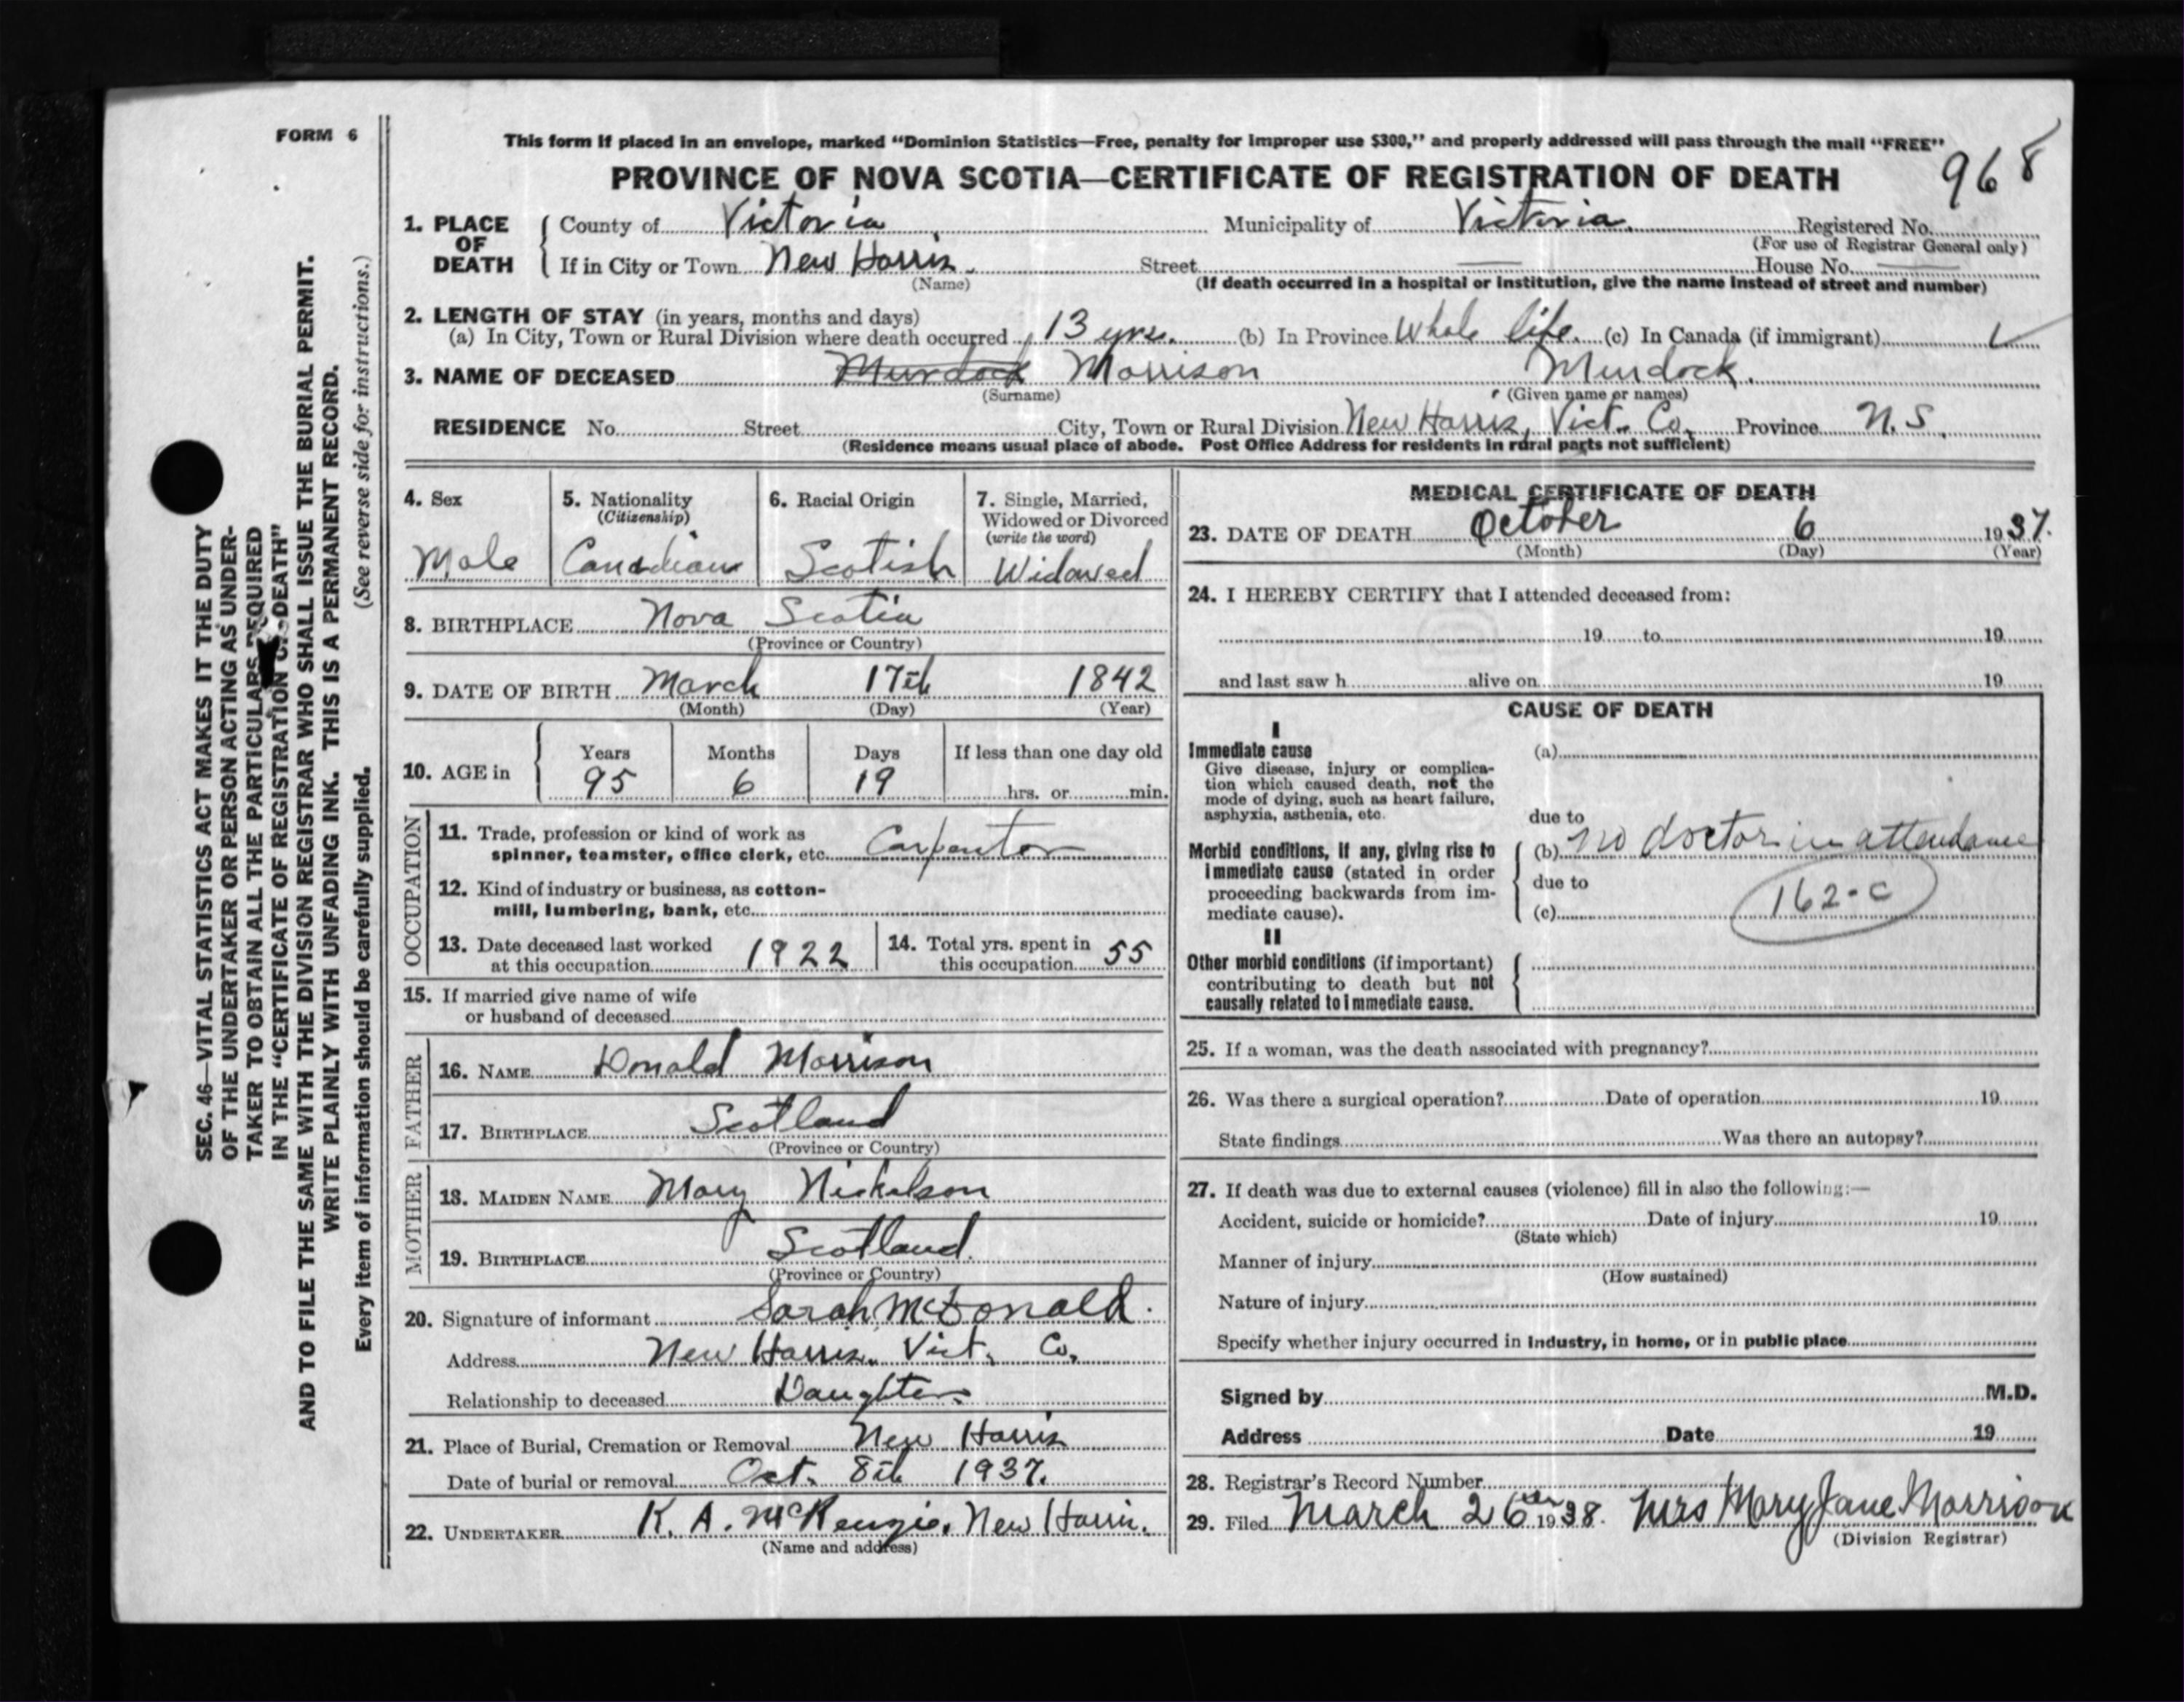 FORM 6
This form if placed in an envelope, marked "Dominion Statistics—Free, penalty for improper use $300," and properly addressed will pass through the mail "FREE"
PROVINCE OF NOVA SCOTIA—CERTIFICATE OF REGISTRATION OF DEATH
968
1. PLACE OF DEATH { County of Victoria Municipality of Victoria. Registered No.
(For use of Registrar General only)
If in City or Town New Harris. Street — House No. —
(Name) (If death occurred in a hospital or institution, give the name instead of street and number)
2. LENGTH OF STAY (in years, months and days)
(a) In City, Town or Rural Division where death occurred 13 yrs. (b) In Province Whole life. (c) In Canada (if immigrant) ✓
3. NAME OF DECEASED Murdock Morrison Murdock.
(Surname) (Given name or names)
RESIDENCE No. Street City, Town or Rural Division New Harris, Vict. Co. Province N.S.
(Residence means usual place of abode. Post Office Address for residents in rural parts not sufficient)
4. Sex
Male
5. Nationality
(Citizenship)
Canadian
6. Racial Origin
Scotish
7. Single, Married,
Widowed or Divorced
(write the word)
Widowed
8. BIRTHPLACE Nova Scotia
(Province or Country)
9. DATE OF BIRTH March 17th 1842
(Month) (Day) (Year)
10. AGE in { Years Months Days If less than one day old
95 6 19 hrs. or min.
OCCUPATION
11. Trade, profession or kind of work as
spinner, teamster, office clerk, etc. Carpentor
12. Kind of industry or business, as cotton-
mill, lumbering, bank, etc.
13. Date deceased last worked
at this occupation 1922
14. Total yrs. spent in
this occupation 55
15. If married give name of wife
or husband of deceased
FATHER
16. NAME Donald Morrison
17. BIRTHPLACE Scotland
(Province or Country)
MOTHER
18. MAIDEN NAME Mary Nicholson
19. BIRTHPLACE Scotland.
(Province or Country)
20. Signature of informant Sarah McDonald.
Address New Harris. Vict. Co.
Relationship to deceased Daughter
21. Place of Burial, Cremation or Removal New Harris
Date of burial or removal Oct. 8th 1937.
22. UNDERTAKER K. A. McKenzie. New Harris.
(Name and address)
MEDICAL CERTIFICATE OF DEATH
23. DATE OF DEATH October 6 1937.
(Month) (Day) (Year)
24. I HEREBY CERTIFY that I attended deceased from:
19 to 19
and last saw h alive on 19
CAUSE OF DEATH
I
Immediate cause
Give disease, injury or complica-
tion which caused death, not the
mode of dying, such as heart failure,
asphyxia, asthenia, etc.
(a)
due to
Morbid conditions, if any, giving rise to
immediate cause (stated in order
proceeding backwards from im-
mediate cause).
(b) no doctor in attendance
due to
(c) 162-c
II
Other morbid conditions (if important)
contributing to death but not
causally related to immediate cause.
25. If a woman, was the death associated with pregnancy?
26. Was there a surgical operation? Date of operation 19
State findings Was there an autopsy?
27. If death was due to external causes (violence) fill in also the following:—
Accident, suicide or homicide? Date of injury 19
(State which)
Manner of injury
(How sustained)
Nature of injury
Specify whether injury occurred in industry, in home, or in public place
Signed by M.D.
Address Date 19
28. Registrar's Record Number
29. Filed March 26th 1938. Mrs Mary Jane Morrison
(Division Registrar)
SEC. 46—VITAL STATISTICS ACT MAKES IT THE DUTY
OF THE UNDERTAKER OR PERSON ACTING AS UNDER-
TAKER TO OBTAIN ALL THE PARTICULARS REQUIRED
IN THE "CERTIFICATE OF REGISTRATION OF DEATH"
AND TO FILE THE SAME WITH THE DIVISION REGISTRAR WHO SHALL ISSUE THE BURIAL PERMIT.
WRITE PLAINLY WITH UNFADING INK. THIS IS A PERMANENT RECORD.
Every item of information should be carefully supplied. (See reverse side for instructions.)